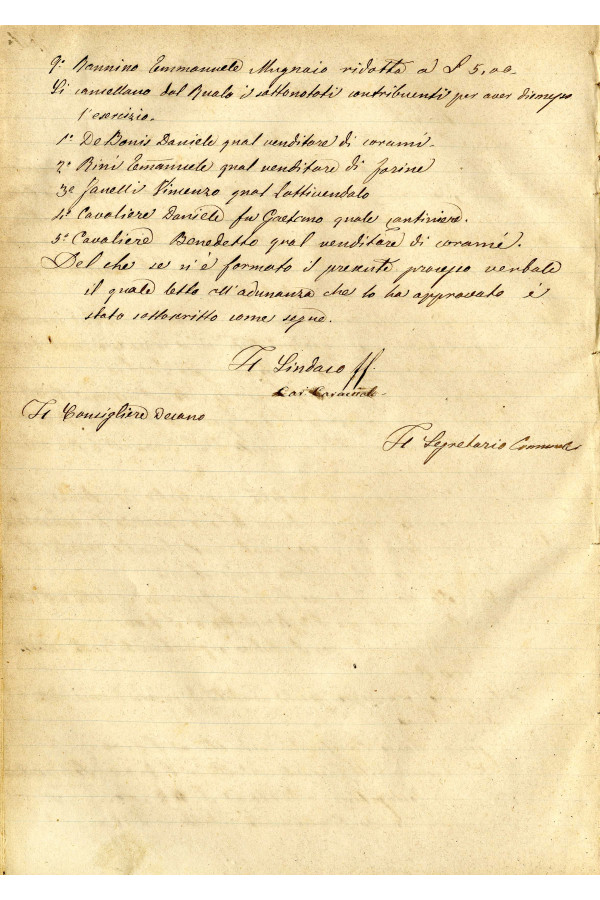 9º Bonnino Emmanuele Mugnaio ridotta a £ 5,00.
Si cancellano dal Ruolo i sottonotati contribuenti per aver dismesso
l'esercizio.
1º De Bonis Daniele qual venditore di corami.
2º Rini Emanuele qual venditore di farine
3º Janelli Vincenzo qual lattivendolo
4º Cavaliere Daniele fu Gaetano quale cantiniere.
5º Cavaliere Benedetto qual venditore di corami.
Del che se n'è formato il presente processo verbale
il quale letto all'adunanza che lo ha approvato è
stato sottoscritto come segue.
Il Sindaco ff.
Il Consigliere Decano
Il Segretario Comunale